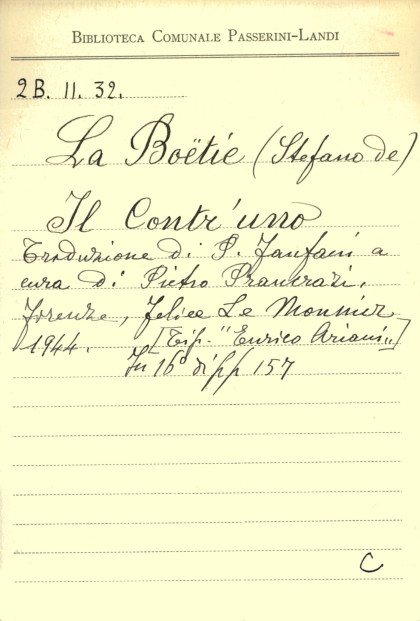 BIBLIOTECA COMUNALE PASSERINI-LANDI
2B. II. 32.
La Boëtie (Stefano de)
Il Contr'uno
Traduzione di P. Fanfani a
cura di Pietro Pancrazi.
Firenze, Felice Le Monnier
1944. [Tip. "Enrico Ariani"]
In 16° di pp 157
C